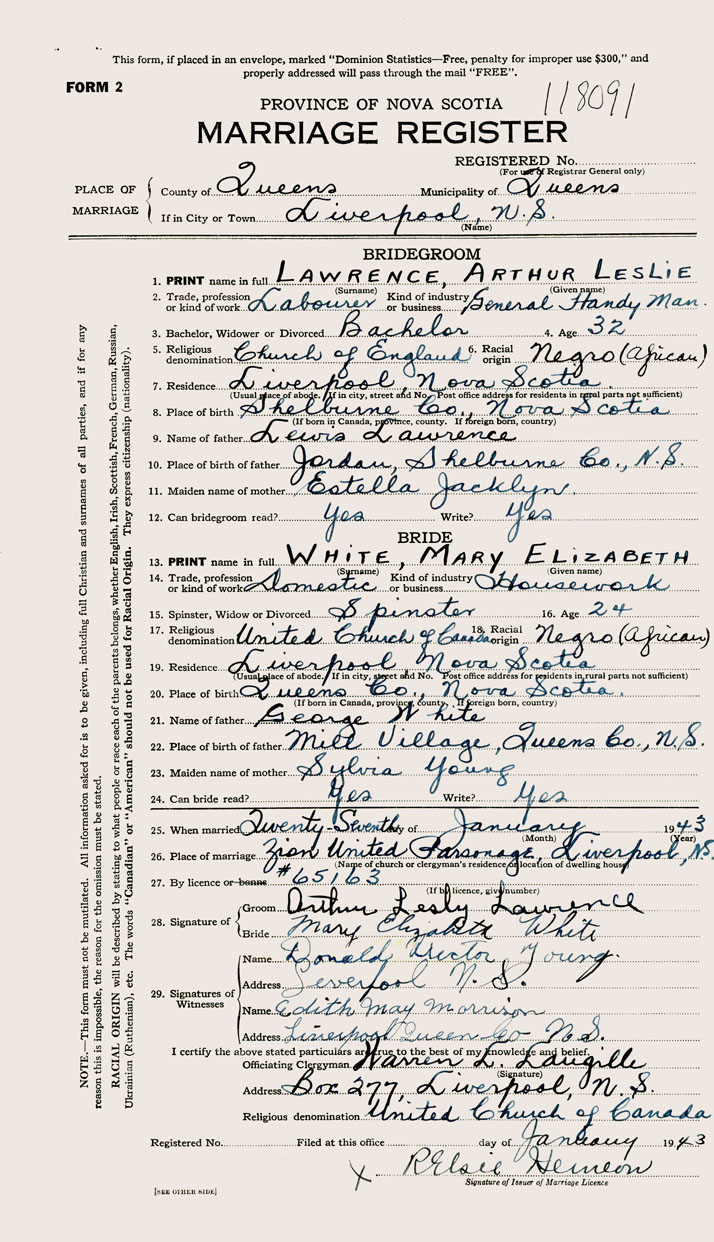 This form, if placed in an envelope, marked "Dominion Statistics—Free, penalty for improper use $300," and
properly addressed will pass through the mail "FREE".
FORM 2
118091
PROVINCE OF NOVA SCOTIA
MARRIAGE REGISTER
REGISTERED No.
(For use of Registrar General only)
PLACE OF MARRIAGE
County of Queens Municipality of Queens
If in City or Town Liverpool, N.S.
(Name)
BRIDEGROOM
1. PRINT name in full LAWRENCE, ARTHUR LESLIE
(Surname) (Given name)
2. Trade, profession or kind of work Labourer Kind of industry or business General Handy Man.
3. Bachelor, Widower or Divorced Bachelor 4. Age 32
5. Religious denomination Church of England 6. Racial origin Negro (African)
7. Residence Liverpool, Nova Scotia.
(Usual place of abode. If in city, street and No. Post office address for residents in rural parts not sufficient)
8. Place of birth Shelburne Co., Nova Scotia
(If born in Canada, province, county. If foreign born, country)
9. Name of father Lewis Lawrence
10. Place of birth of father Jordan, Shelburne Co., N.S.
11. Maiden name of mother Estella Jacklyn.
12. Can bridegroom read? Yes Write? Yes
BRIDE
13. PRINT name in full WHITE, MARY ELIZABETH
(Surname) (Given name)
14. Trade, profession or kind of work Domestic Kind of industry or business Housework
15. Spinster, Widow or Divorced Spinster 16. Age 24
17. Religious denomination United Church of Canada 18. Racial origin Negro (African)
19. Residence Liverpool Nova Scotia
(Usual place of abode. If in city, street and No. Post office address for residents in rural parts not sufficient)
20. Place of birth Queens Co., Nova Scotia.
(If born in Canada, province, county. If foreign born, country)
21. Name of father George White
22. Place of birth of father Mill Village, Queens Co., N.S.
23. Maiden name of mother Sylvia Young
24. Can bride read? Yes Write? Yes
25. When married Twenty-Seventh day of January 1943
(Month) (Year)
26. Place of marriage Zion United Parsonage, Liverpool, N.S.
(Name of church or clergyman's residence, or location of dwelling house)
27. By licence or banns #65163
(If by licence, give number)
28. Signature of
Groom Arthur Lesly Lawrence
Bride Mary Elizabeth White
29. Signatures of Witnesses
Name Donald Victor Young.
Address Liverpool N.S.
Name Edith May Morrison
Address Liverpool Queen Co N.S.
I certify the above stated particulars are true to the best of my knowledge and belief.
Officiating Clergyman Warren L. Langille
(Signature)
Address Box 277, Liverpool, N.S.
Religious denomination United Church of Canada
Registered No. Filed at this office day of January 1943
X R Elsie Hemeon
Signature of Issuer of Marriage Licence
[SEE OTHER SIDE]
NOTE.—This form must not be mutilated. All information asked for is to be given, including full Christian and surnames of all parties, and if for any
reason this is impossible, the reason for the omission must be stated.
RACIAL ORIGIN will be described by stating to what people or race each of the parents belongs, whether English, Irish, Scottish, French, German, Russian,
Ukrainian (Ruthenian), etc. The words "Canadian" or "American" should not be used for Racial Origin. They express citizenship (nationality).